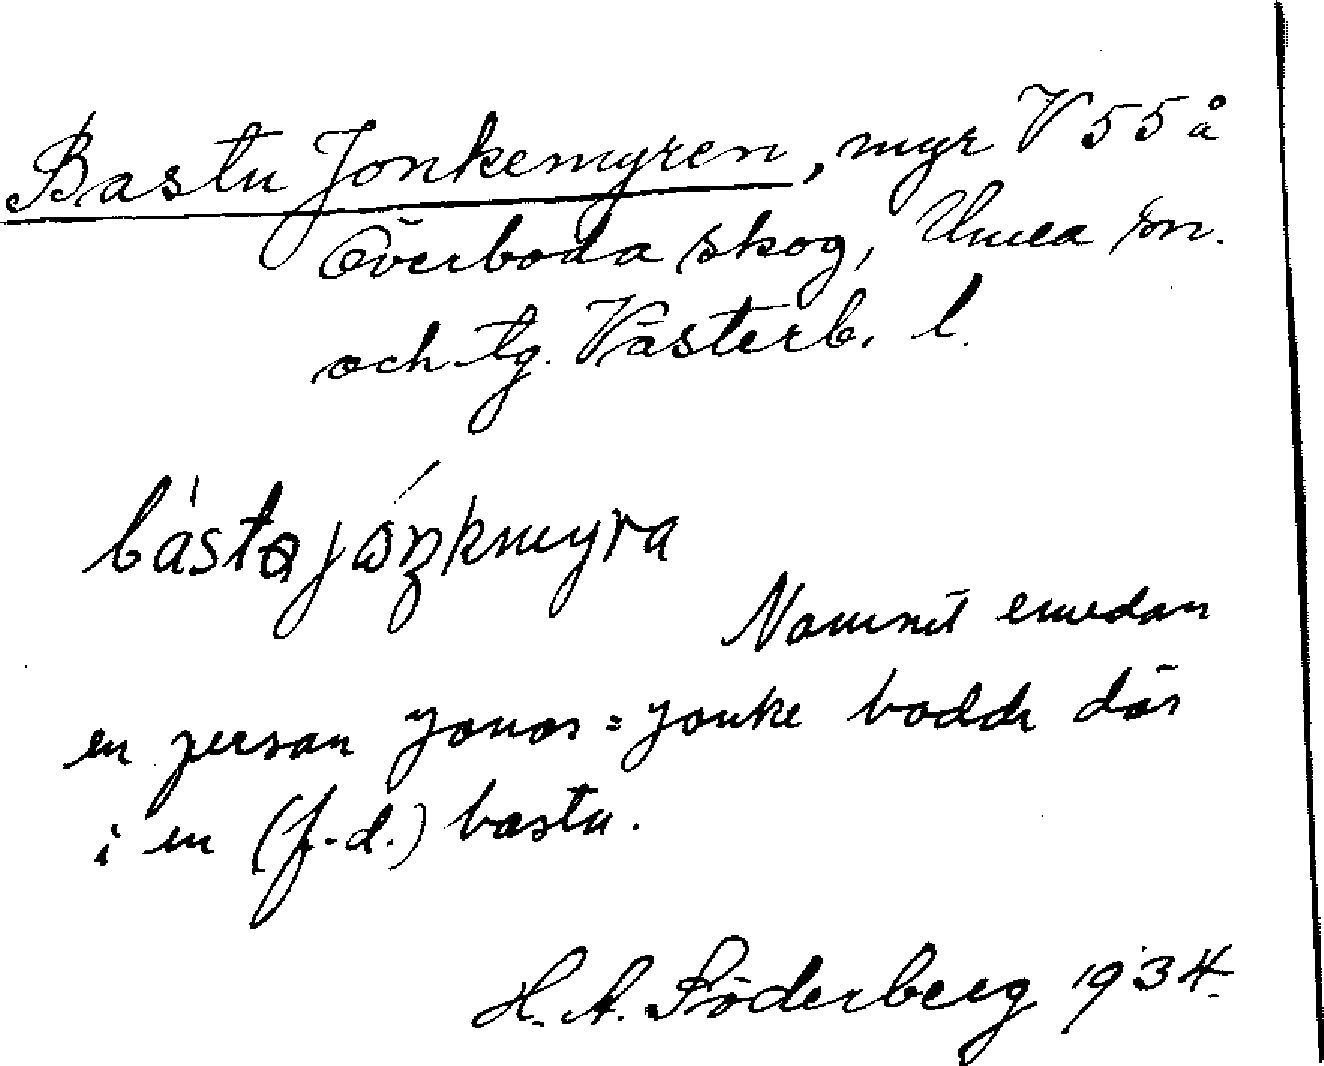 Bastu Jonkemyren, myr V 55 å
Överboda skog, Umeå sn.
och tg. Västerb. l.
Namnet emedan
en person Jonas = Jonke bodde där
i en (f.d.) bastu.
H. A. Söderberg 1934.